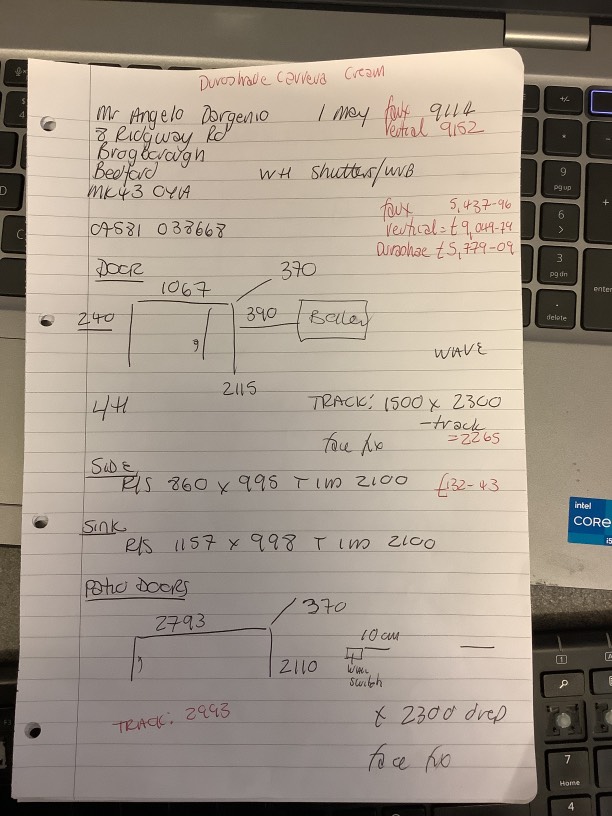 Duroshade Carrera Cream
Mr Angelo Dargenio 1 May faux 9114
8 Ridgway Rd Vertical 9152
Brogborough
Bedford WH Shutters/WVB
MK43 0YA
faux 5,437-96
07581 038668 Vertical = £9,049-79
Duroshae £5,779-09
DOOR 370
1067
240 390 Boiler
WAVE
2115
L/H TRACK: 1500 x 2300
-track
face fix =2265
SIDE
R/S 860 x 995 T 1m 2100 £132-43
SINK
R/S 1157 x 998 T 1m 2100
PATIO DOORS
2793 370
10cm
2110 Wall
switch
TRACK: 2993 x 2300 drop
face fix
intel
CORE
i5
+/-
*
-
9
pg up
+
6
>
3
pg dn
enter
.
delete
7
Home
4
1